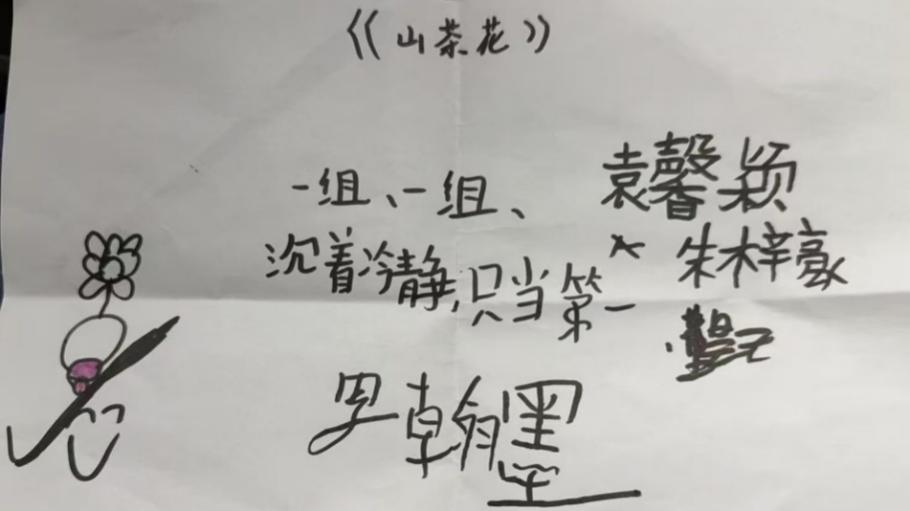 《山茶花》
一组、一组、
沉着冷静,只当第一
袁馨颖
朱梓豪
罗翰墨